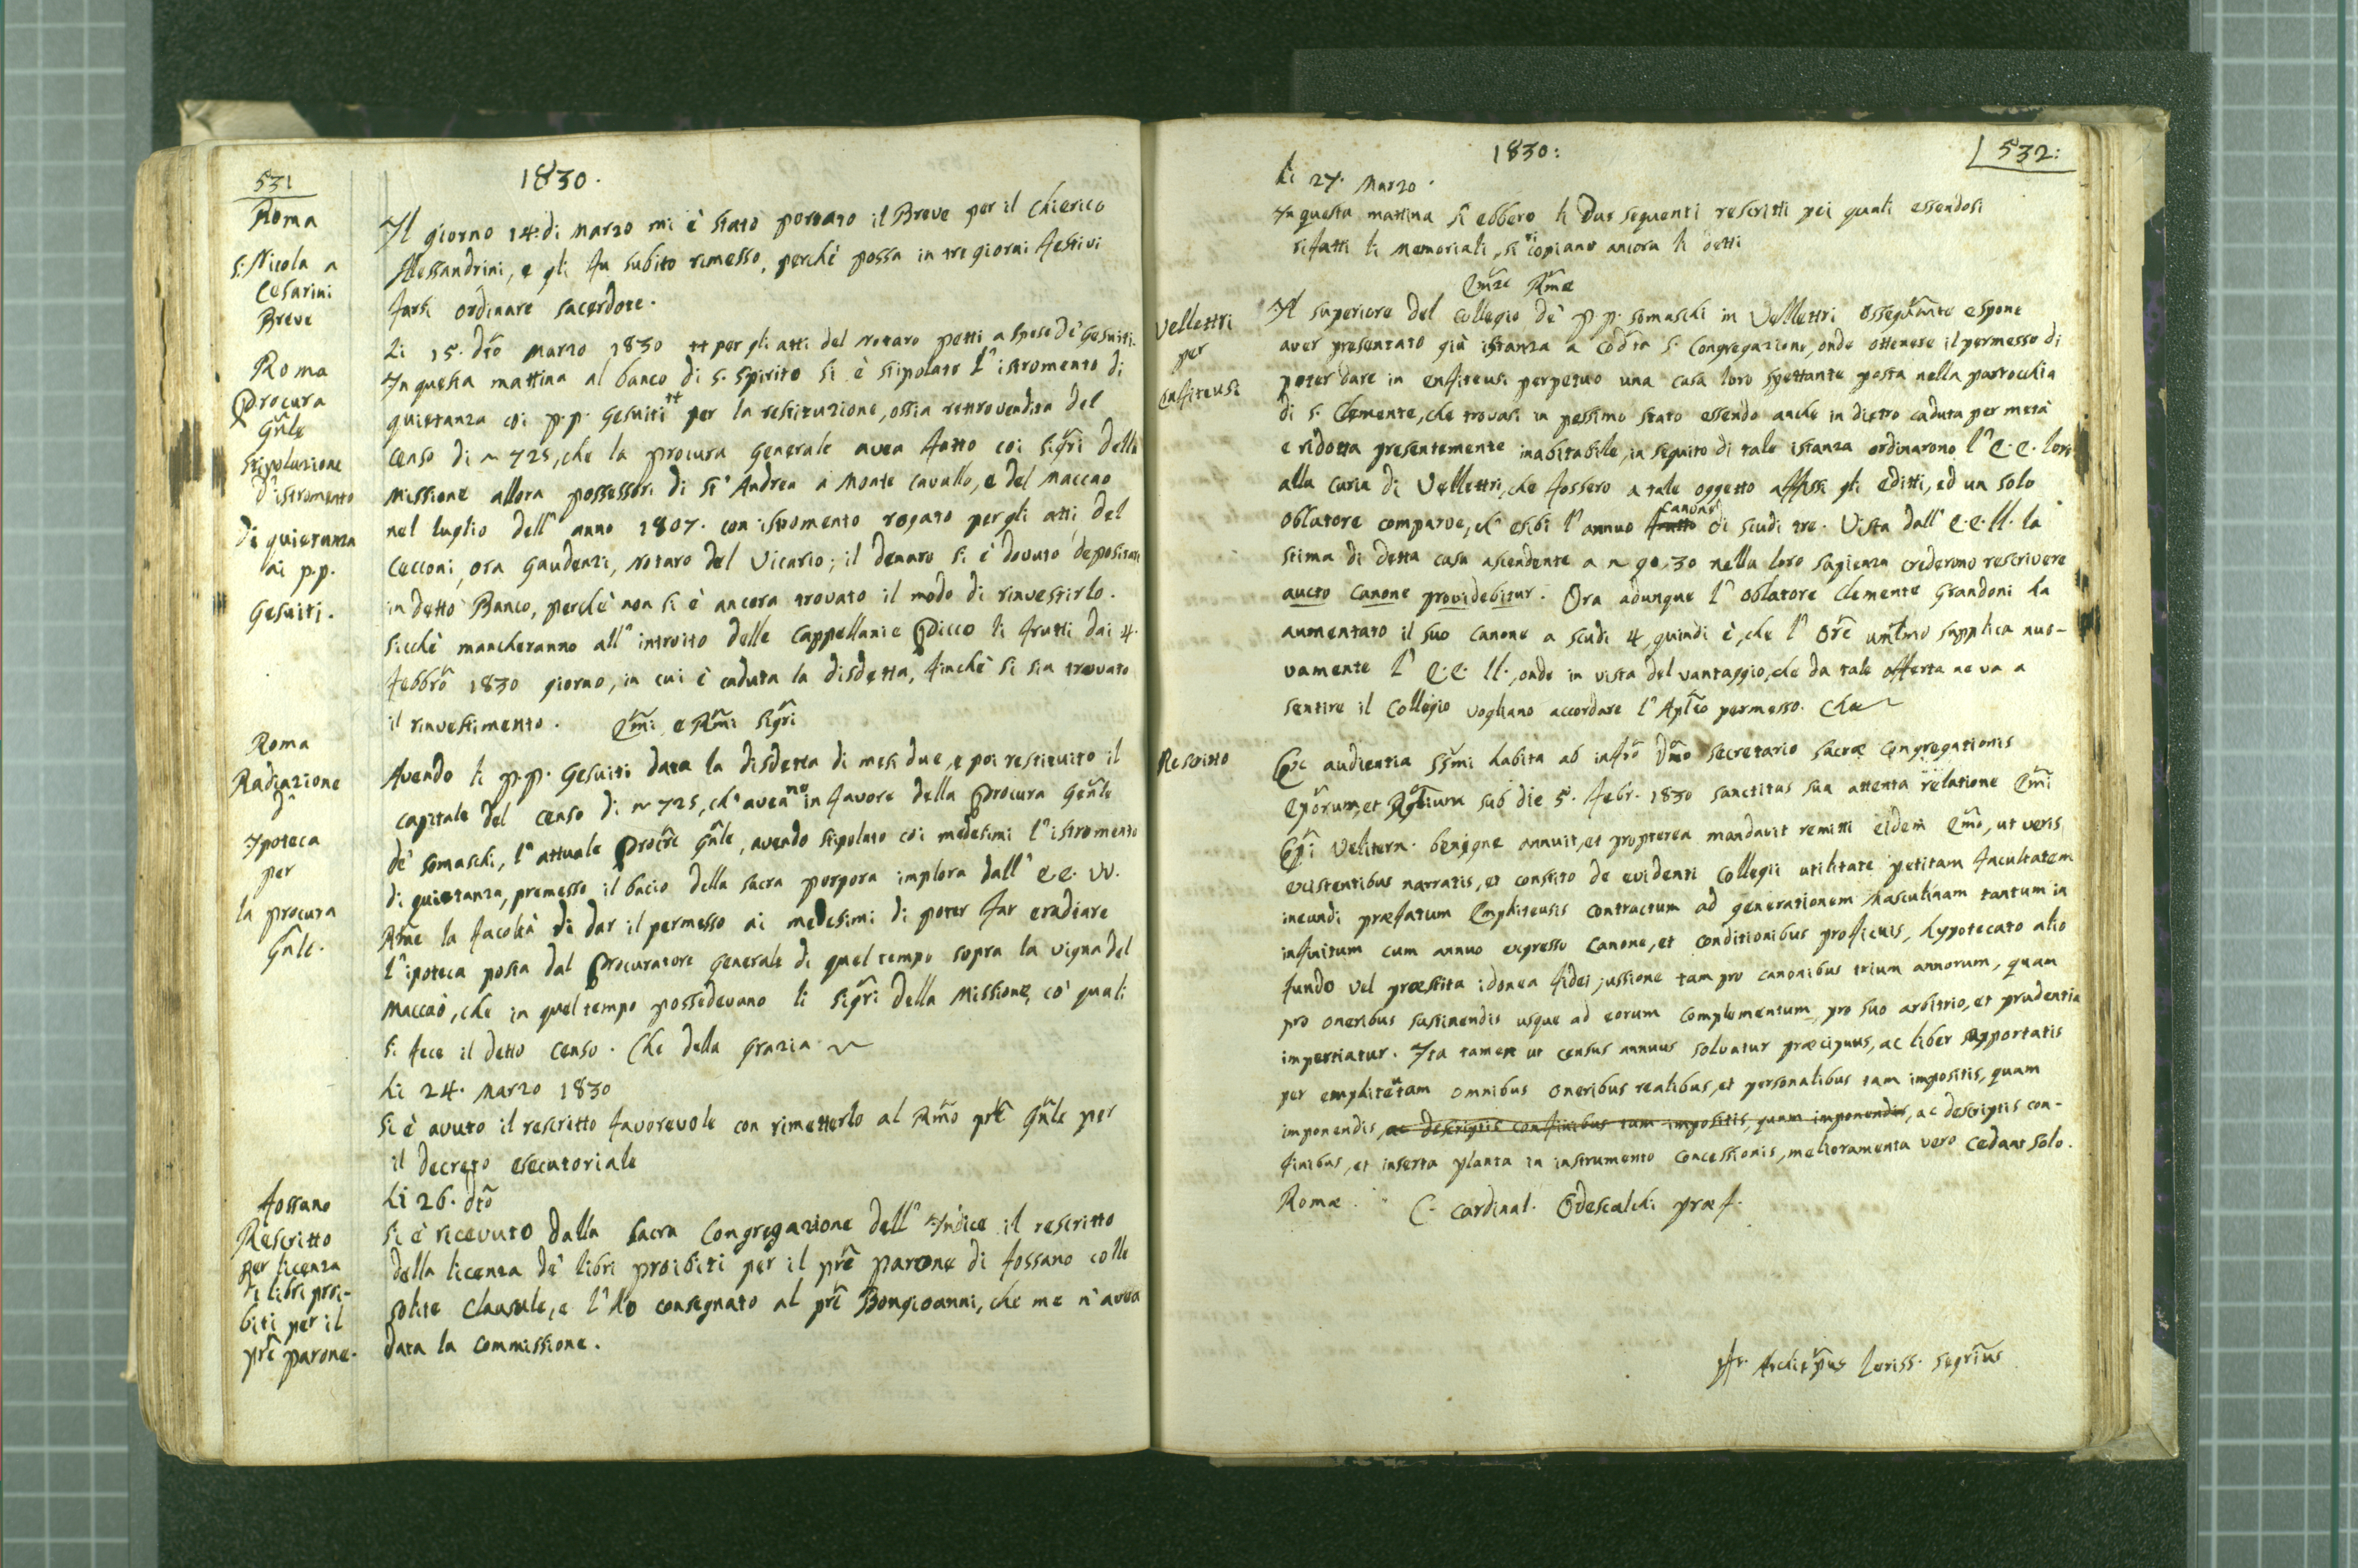 531
1830.
Roma
S. Nicola a
Cesarini
Breve
Il giorno 14. di Marzo mi è stato portato il Breve per il Chierico
Alessandrini, e gli fu subito rimesso, perchè possa in tre giorni festivi
farsi ordinare sacerdote.
Roma
Procura
Gñle
Stipolazione
d'istromento
di quietanza
ai p.p.
Gesuiti.
Li 15. dtõ Marzo 1830 ++ per gli atti del Notaro petti a spese de' Gesuiti.
In questa mattina al banco di S. Spirito si è stipolato l'istromento di
quietanza coi p.p. Gesuiti ++ per la restituzione, ossia retrovendita del
Censo di ~ 725, che la procura Generale avea fatto coi Sigr̃i della
Missione allora possessori di St' Andrea a Monte Cavallo, e del Maccao
nel luglio dell' anno 1807. con istromento rogato per gli atti del
Cecconi, ora Gaudenzi, Notaro del Vicario; il denaro si è dovuto depositare
in detto Banco, perchè non si è ancora trovato il modo di rinvestirlo.
Sicchè mancheranno all' introito delle Cappellanie Picco li frutti dai 4.
Febbrõ 1830 giorno, in cui è caduta la disdetta, finchè si sia trovato
il rinvestimento. Em̃i e Rm̃i Sigr̃i
Roma
Radiazione
d'
Ipoteca
per
la procura
Gñle.
Avendo li p.p. Gesuiti data la disdetta di mesi due, e poi restituito il
capitale del Censo di ~ 725, ch' aveano in favore della Procura Gen̄le
de' Somaschi, l' attuale Procr̃e Gñle, avendo stipolato coi medesimi l' istromento
di quietanza, premesso il bacio della sacra porpora implora dall' E.E. VV.
Rm̃e la facoltà di dar il permesso ai medesimi di poter far eradiare
l' ipoteca posta dal Procuratore Generale di quel tempo sopra la vigna del
Maccaò, che in quel tempo possedevano li Sigr̃i della Missione, co' quali
si fece il detto Censo. Che della Grazia ~
Li 24. Marzo 1830
Si è avuto il rescritto favorevole con rimetterlo al Rm̃o pr̃e Gñle per
il decreto esecutoriale
Fossano
Rescritto
per licenza
di libri proi-
biti per il
pr̃e parone.
Li 26. dtõ
Si è ricevuto dalla Sacra Congregazione dell' Indice il rescritto
della licenza de' libri proibiti per il pr̃e parone di Fossano colle
solite clausule, e l' ho consegnato al pr̃e Bongioanni, che me n' avea
data la commissione.
1830:
532:
Li 27. Marzo.
In questa mattina si ebbero li due seguenti rescritti pei quali essendosi
rifatti li Memoriali, si ricopiano ancora li detti
Em̃ze Rm̃e
Vellettri
per
Enfiteusi
Il superiore del Collegio de' p.p. Somaschi in Vellettri ossequm̃te espone
aver presentato già istanza a cod̃ta S. Congregazione, onde ottenere il permesso di
poter dare in enfiteusi perpetuo una casa loro spettante posta nella parrocchia
di S. Clemente, che trovasi in pessimo stato essendo anche in dietro caduta per metà
e ridotta presentemente inabitabile, in seguito di tale istanza ordinarono l' E.E. loro
alla Curia di Vellettri, che fossero a tale oggetto affissi gli editti, ed un solo
oblatore comparve, ch' esibì l' annuo frutto canone di scudi tre. Vista dall' E.E. ll. la
stima di detta casa ascendente a ~ 90,30 nella loro sapienza credermo rescrivere
aucto Canone providebitur. Ora adunque l' oblatore Clemente Grandoni ha
aumentato il suo canone a scudi 4, quindi è, che l' Or̃e um̃lmo supplica nuo-
vamente l' E.E. ll., onde in vista del vantaggio, che da tale offerta ne va a
sentire il Collegio vogliano accordare l' Apl̃co permesso. Che ~
Rescritto
Ex audientia SSm̃i habita ab infrõ Dñno Secretario Sacræ Congregationis
Epõrum, et Rglium sub die 5. Febr. 1830 Sanctitas sua attenta relatione Em̃i
Epĩ Velitern. benigne annuit, et propterea mandavit remitti eidem Em̃o, ut veris
existentibus narratis, et constito de evidenti Collegii utilitate petitam facultatem
ineundi præfatum Emphiteusis contractum ad generationem Masculinam tantum in
infinitum cum annuo expresso Canone, et conditionibus proficuis, hypotecato alio
fundo vel præstita idonea fidei jussione tam pro canonibus trium annorum, quam
pro oneribus sustinendis usque ad eorum complementum, pro suo arbitrio, et prudentia
impertiatur. Ita tamen ut census annuus solvatur præcipuus, ac liber supportatis
per emphiteutam omnibus oneribus realibus, et personalibus tam impositis, quam
imponendis, ac descriptis confinibus tam impositis, quam imponendis, ac descriptis con-
finibus, et inserta planta in instrumento concessionis, melioramenta vero cedant solo.
Romæ. C. Cardinal. Odescalchi præf.
Archiep̃us Lariss. Segr̃ius